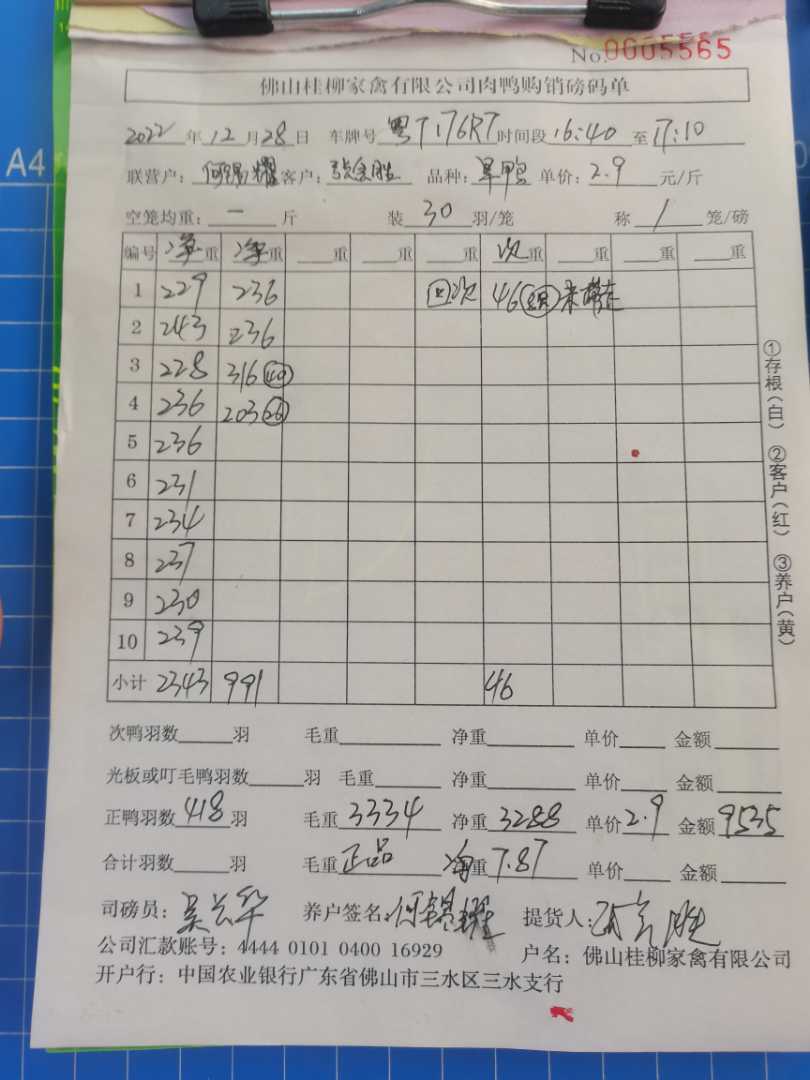 A4
No.0005565
佛山桂柳家禽有限公司肉鸭购销磅码单
2022年12月28日 车牌号 粤T176R7 时间段 16:40 至 17:10
联营户: 何锡耀 客户: 品种: 单价: 2.9 元/斤
空笼均重: 一 斤 装 30 羽/笼 称 1 笼/磅
编号 净重 净重 重 重 重 次重 重 重 重
1 229 236 次 46
2 243 236
3 228 316 40
4 236 203 26
5 236
6 231
7 234
8 237
9 230
10 239
小计 2343 991 46
①存根(白) ②客户(红) ③养户(黄)
次鸭羽数 羽 毛重 净重 单价 金额
光板或叮毛鸭羽数 羽 毛重 净重 单价 金额
正鸭羽数 418 羽 毛重 3334 净重 3288 单价 2.9 金额 9535
合计羽数 羽 毛重 正品 净重 7.87 单价 金额
司磅员: 吴兴华 养户签名: 何锡耀 提货人:
公司汇款账号: 4444 0101 0400 16929 户名: 佛山桂柳家禽有限公司
开户行: 中国农业银行广东省佛山市三水区三水支行